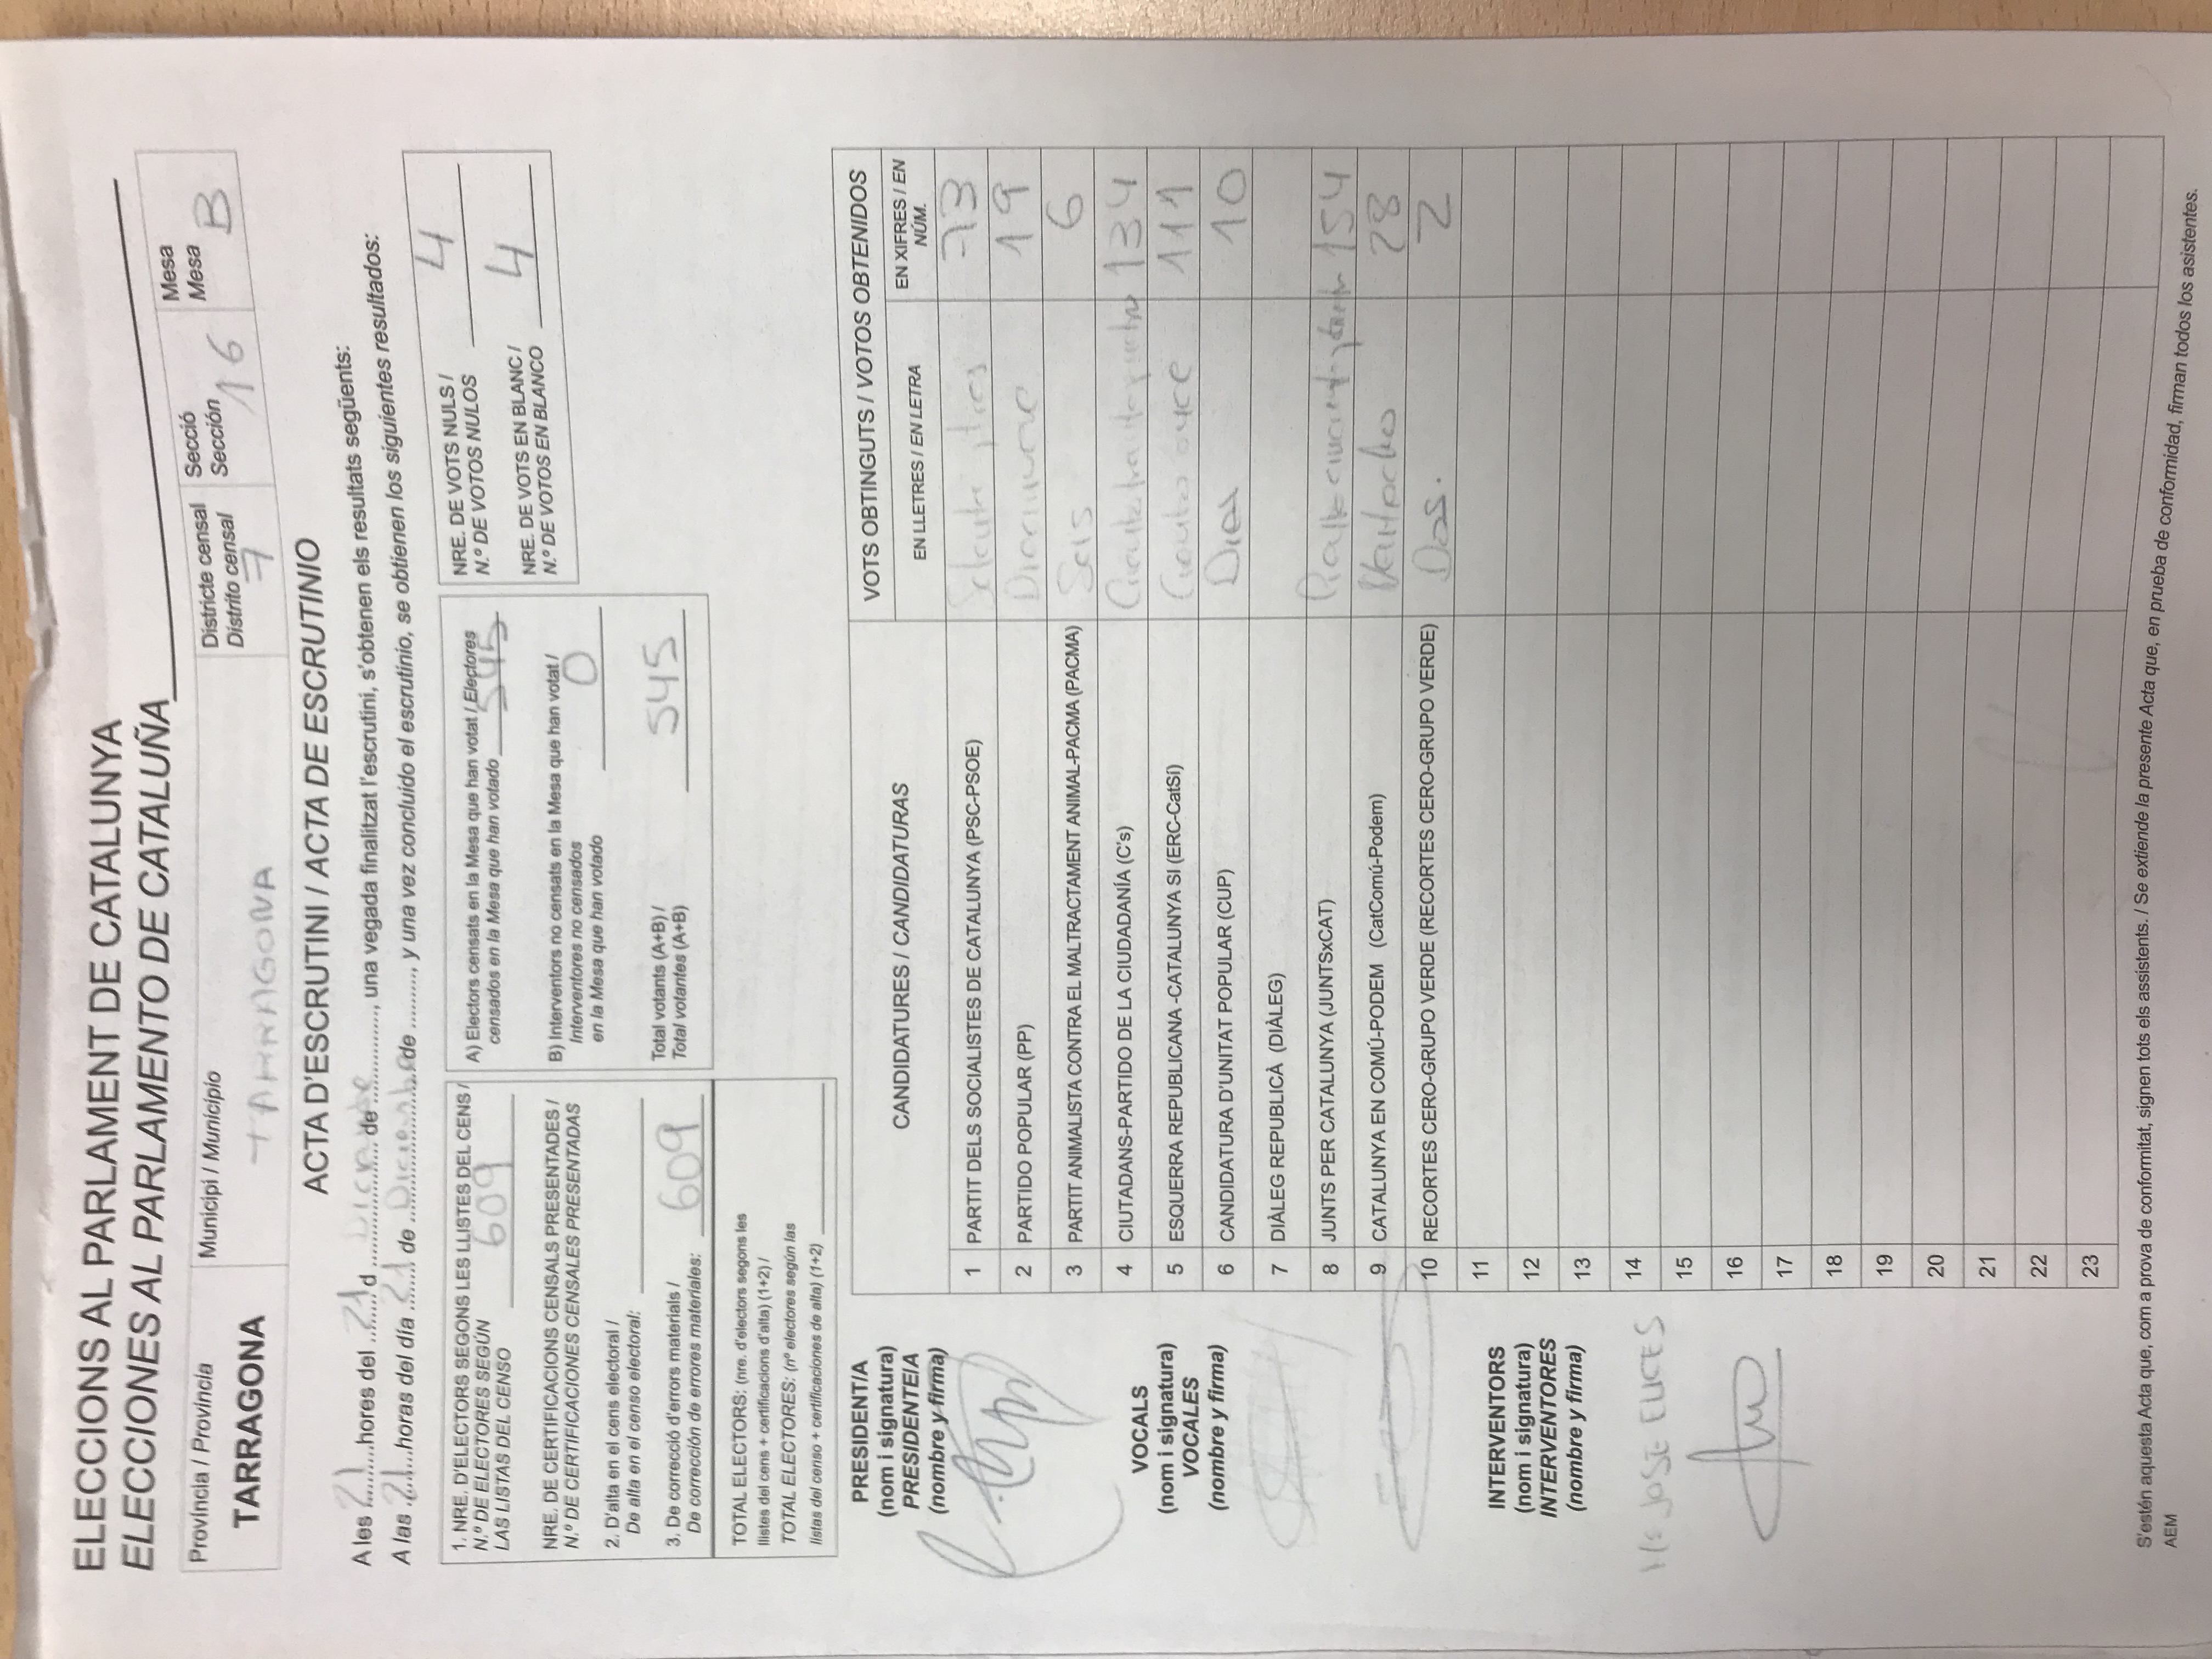 ELECCIONS AL PARLAMENT DE CATALUNYA
ELECCIONES AL PARLAMENTO DE CATALUÑA
Província / Provincia
TARRAGONA
Municipi / Municipio
TARRAGONA
Districte censal
Distrito censal
7
Secció
Sección
16
Mesa
Mesa
B
ACTA D'ESCRUTINI / ACTA DE ESCRUTINIO
A les 21 hores del 21 d ........ de ........, una vegada finalitzat l'escrutini, s'obtenen els resultats següents:
A las 21 horas del día 21 de Diciembre de ........, y una vez concluido el escrutinio, se obtienen los siguientes resultados:
1. NRE. D'ELECTORS SEGONS LES LLISTES DEL CENS /
N.º DE ELECTORES SEGÚN
LAS LISTAS DEL CENSO 609
NRE. DE CERTIFICACIONS CENSALS PRESENTADES /
N.º DE CERTIFICACIONES CENSALES PRESENTADAS
2. D'alta en el cens electoral /
De alta en el censo electoral:
3. De correcció d'errors materials /
De corrección de errores materiales: 609
TOTAL ELECTORS: (nre. d'electors segons les
llistes del cens + certificacions d'alta) (1+2) /
TOTAL ELECTORES: (nº electores según las
listas del censo + certificaciones de alta) (1+2)
A) Electors censats en la Mesa que han votat / Electores
censados en la Mesa que han votado 545
B) Interventors no censats en la Mesa que han votat /
Interventores no censados
en la Mesa que han votado 0
Total votants (A+B) /
Total votantes (A+B) 545
NRE. DE VOTS NULS /
N.º DE VOTOS NULOS 4
NRE. DE VOTS EN BLANC /
N.º DE VOTOS EN BLANCO 4
PRESIDENT/A
(nom i signatura)
PRESIDENTE/A
(nombre y firma)
VOCALS
(nom i signatura)
VOCALES
(nombre y firma)
INTERVENTORS
(nom i signatura)
INTERVENTORES
(nombre y firma)
Mª JOSE ELICES
CANDIDATURES / CANDIDATURAS
VOTS OBTINGUTS / VOTOS OBTENIDOS
EN LLETRES / EN LETRA
EN XIFRES / EN
NÚM.
1 PARTIT DELS SOCIALISTES DE CATALUNYA (PSC-PSOE) Setenta y tres 73
2 PARTIDO POPULAR (PP) Diecinueve 19
3 PARTIT ANIMALISTA CONTRA EL MALTRACTAMENT ANIMAL-PACMA (PACMA) Seis 6
4 CIUTADANS-PARTIDO DE LA CIUDADANÍA (C's) 134
5 ESQUERRA REPUBLICANA -CATALUNYA SI (ERC-CatSí) Ciento once 111
6 CANDIDATURA D'UNITAT POPULAR (CUP) Diez 10
7 DIÀLEG REPUBLICÀ (DIÀLEG)
8 JUNTS PER CATALUNYA (JUNTSxCAT) 154
9 CATALUNYA EN COMÚ-PODEM (CatComú-Podem) 28
10 RECORTES CERO-GRUPO VERDE (RECORTES CERO-GRUPO VERDE) Dos. 2
11
12
13
14
15
16
17
18
19
20
21
22
23
S'estén aquesta Acta que, com a prova de conformitat, signen tots els assistents. / Se extiende la presente Acta que, en prueba de conformidad, firman todos los asistentes.
AEM